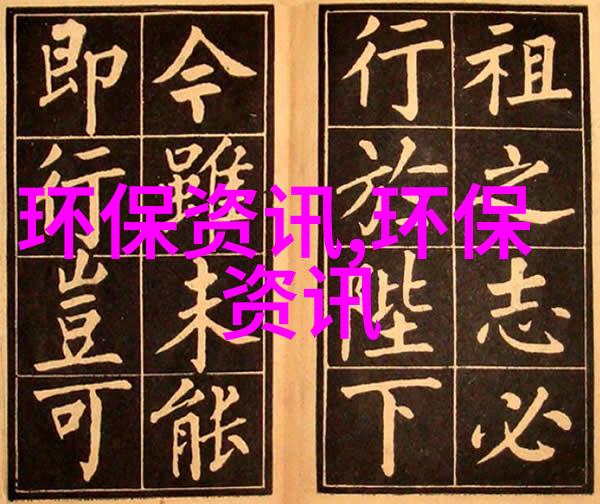 环保资讯,环保
资讯
祖之志必
行於陛下
今雖未能
即行豈可